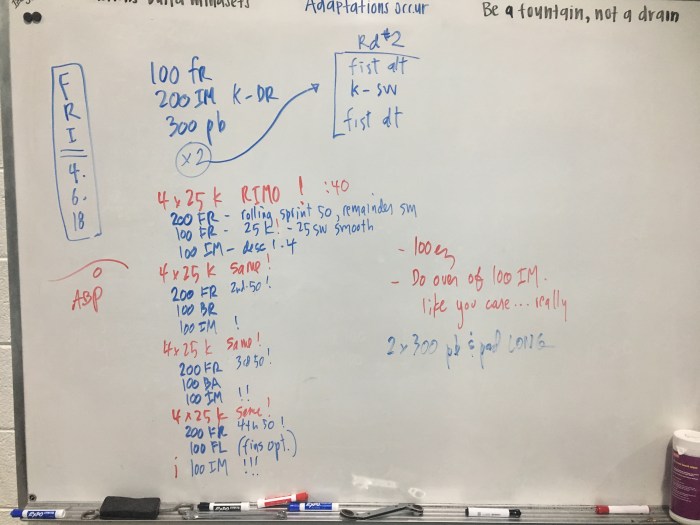 build mindsets
Adaptations occur
Be a fountain, not a drain
FRI
4.
6.
18
100 fR
200 IM K-DR
300 pb
x2
Rd #2
fist alt
k-sw
fist alt
4x25 k RIMO ! :40
200 FR - rolling sprint 50, remainder sm
100 FR - 25 k! - 25 sw smooth
100 IM - desc 1-4
4x25 k same!
200 FR 2nd 50!
100 BR
100 IM !
4x25 k same!
200 FR 3rd 50!
100 BA
100 IM !!
4x25 k same!
200 FR 4th 50!
100 FL (fins opt.)
100 IM !!!
ASP
- 100 ez
- Do over of 100 IM.
like you care... really
2x300 pb & pad LONG
EXPO
EXPO
EXPO
EXPO